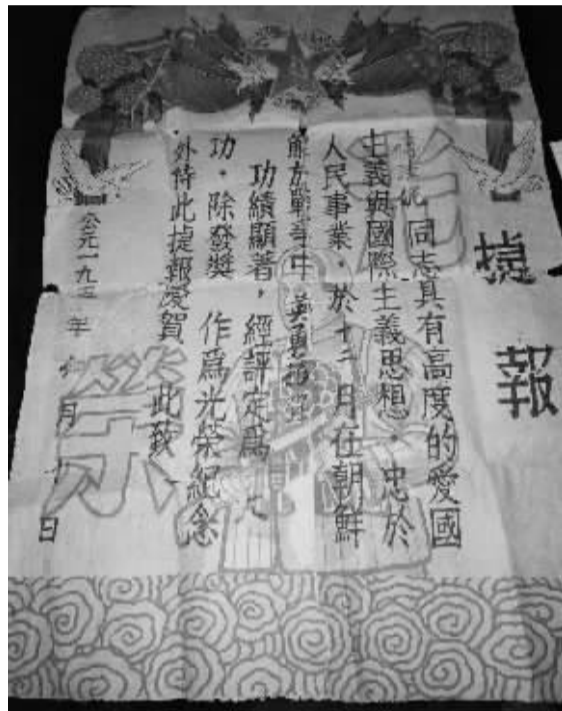 捷報
同志具有高度的愛國
主義與國際主義思想，忠於
人民事業，於十二月在朝鮮
解方戰爭中英勇
功績顯著，經評定爲
功，除發獎 作爲光榮紀念
外特此捷報慶賀 此致
公元一九五 年 月 日
光榮